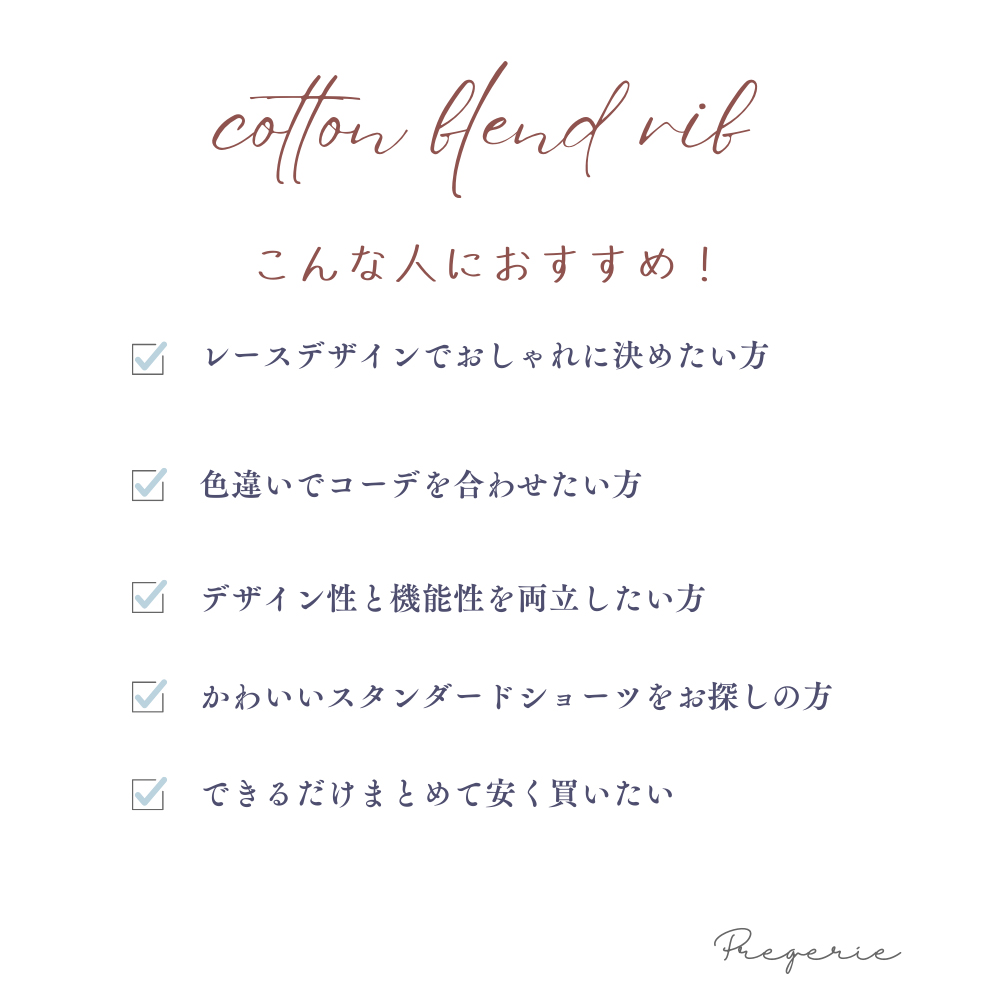 cotton blend rib
こんな人におすすめ！
レースデザインでおしゃれに決めたい方
色違いでコーデを合わせたい方
デザイン性と機能性を両立したい方
かわいいスタンダードショーツをお探しの方
できるだけまとめて安く買いたい
Pregerie